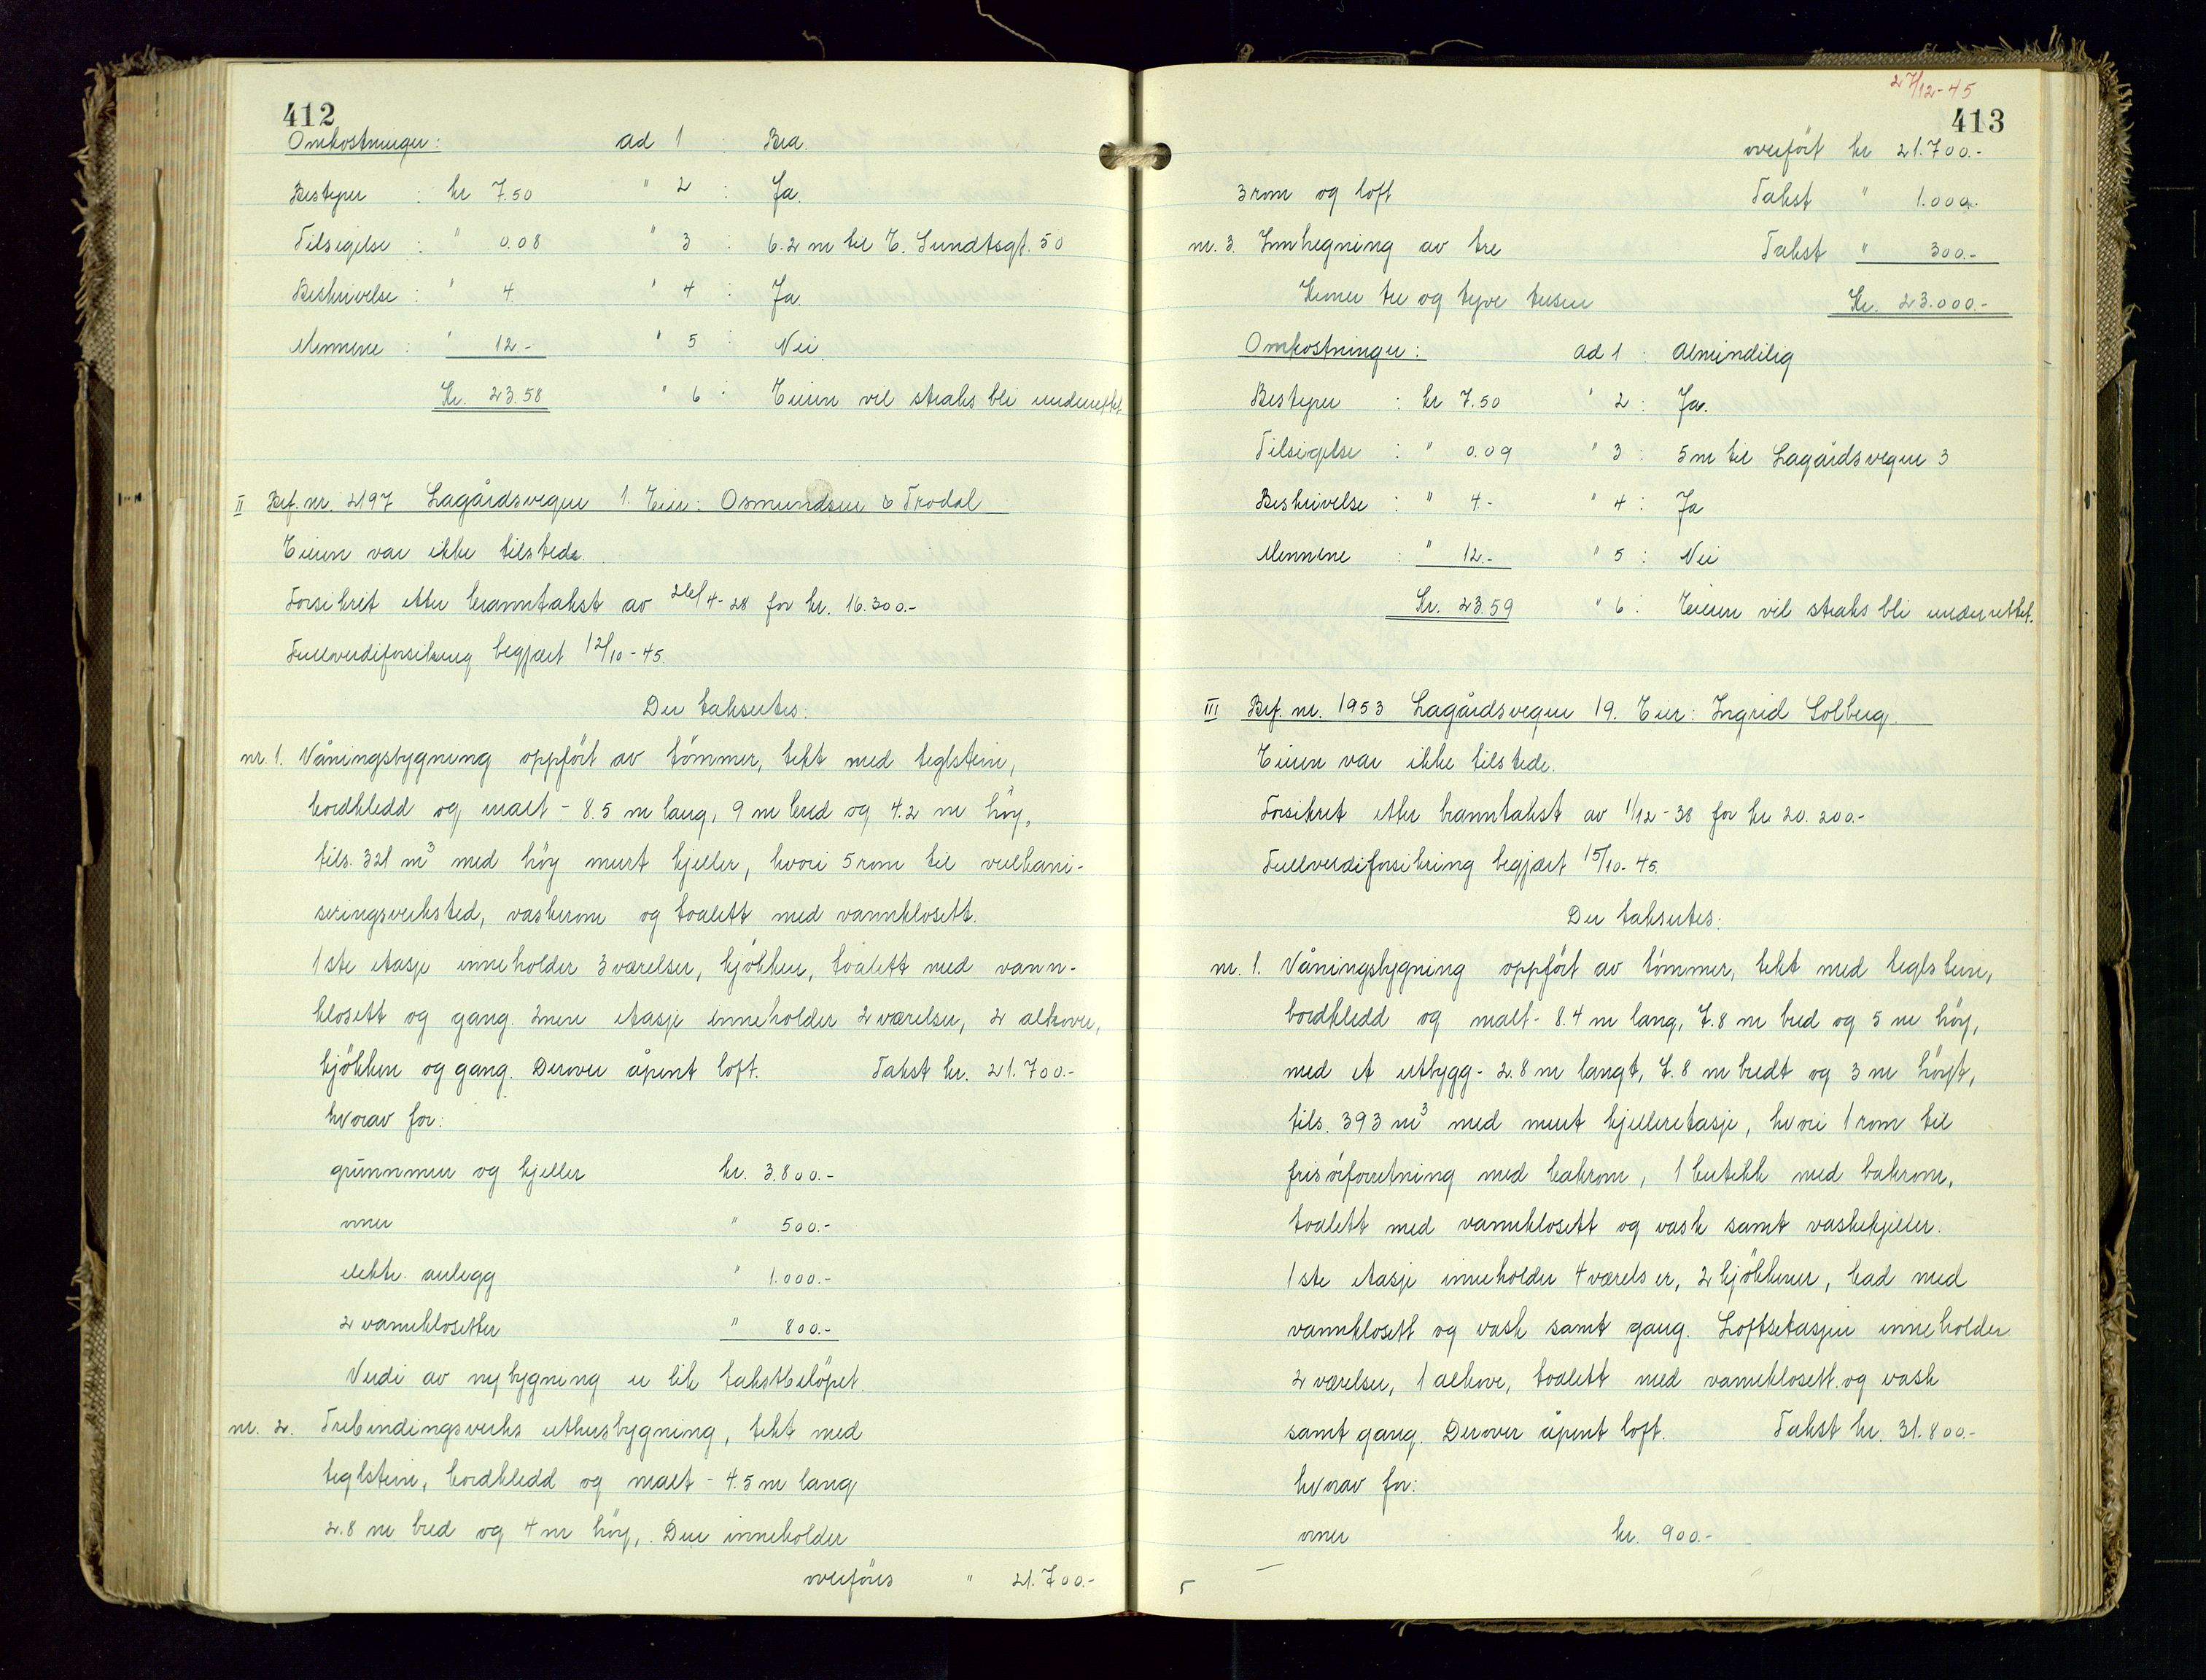 412
Omkostninger: ad 1 : Bra.
Bestyrer : kr 7.50 " 2 : Ja.
Tilsigelse : " 0.08 " 3 : 6.2 m til E. Sundtsgt. 50
Beskrivelse : " 4 " 4 : Ja.
Mennene : " 12.- " 5 : Nei.
Kr. 23.58 " 6 : Eieren vil straks bli underrettet
II Brf. nr. 2197 Lagårdsvegen 1. Eier: Osmundsen & Trodal
Eieren var ikke tilstede.
Forsikret etter branntakst av 26/4-28 for kr. 16.300.-
Fullverdiforsikring begjært 12/10-45.
Der takseres:
nr. 1. Våningsbygning oppfört av tömmer, tekt med teglstein,
bordkledd og malt - 8.5 m lang, 9 m bred og 4.2 m höy,
tils. 321 m³ med höy murt kjeller, hvori 5 rom til vulkani-
seringsverksted, vaskerom og toalett med vannklosett.
1ste etasje inneholder 3 værelser, kjökken, toalett med vann-
klosett og gang. 2nen etasje inneholder 2 værelser, 2 alkover,
kjökken og gang. Derover åpent loft. Takst kr. 21.700.-
hvorav for:
grunnmur og kjeller kr. 3.800.-
ovner " 500.-
elektr. anlegg " 1.000.-
2 vannklosetter " 800.-
Verdi av nybygning er lik takstbelöpet.
nr. 2. Trebindingsverks uthusbygning, tekt med
teglstein, bordkledd og malt - 4.5 m lang
2.8 m bred og 4 m höy, Den inneholder
overföres " 21.700.-
27/12-45
413
overfört kr 21.700.-
3 rom og loft Takst " 1.000.-
nr. 3. Innhegning av tre Takst " 300.-
Kroner tre og tyve tusen Kr. 23.000.-
Omkostninger: ad 1 : Almindelig
Bestyrer : kr 7.50 " 2 : Ja.
Tilsigelse : " 0.09 " 3 : 5 m til Lagårdsvegen 3
Beskrivelse : " 4.- " 4 : Ja
Mennene : " 12.- " 5 : Nei
Kr. 23.59 " 6 : Eieren vil straks bli underrettet.
III Brf. nr. 1953 Lagårdsvegen 19. Eier: Ingrid Solberg.
Eieren var ikke tilstede.
Forsikret etter branntakst av 1/12-38 for kr 20.200.-
Fullverdiforsikring begjært 15/10-45.
Der takseres:
nr. 1. Våningsbygning oppfört av tömmer, tekt med teglstein,
bordkledd og malt - 8.4 m lang, 7.8 m bred og 5 m höy,
med et utbygg - 2.8 m langt, 7.8 m bredt og 3 m höyt,
tils. 393 m³ med murt kjelleretasje, hvori 1 rom til
frisörforretning med bakrom, 1 butikk med bakrom,
toalett med vannklosett og vask samt vaskekjeller.
1ste etasje inneholder 4 værelser, 2 kjökkener, bad med
vannklosett og vask samt gang. Loftsetasjen inneholder
2 værelser, 1 alkove, toalett med vannklosett og vask
samt gang. Derover åpent loft. Takst kr. 31.800.-
hvorav for:
ovner kr. 900.-